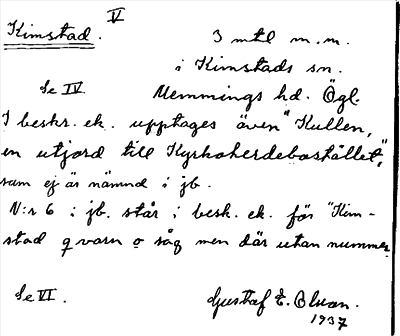 V
Kimstad.
3 mtl m.m.
i Kimstads sn.
Se IV
Memmings hd. Ögl.
I beskr. ek. upptages även "Kullen,
en utjord till Kyrkoherdebostället",
som ej är nämnd i jb.
N:r 6 i jb. står i besk. ek. för "Kim-
stad qvarn o såg men där utan nummer
Se VI.
Gustaf E. Olson.
1937